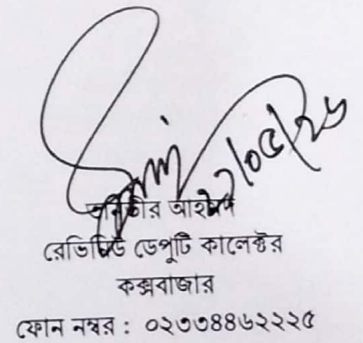 ২/০৫/২৬
আহমেদ
রেভিনিউ ডেপুটি কালেক্টর
কক্সবাজার
ফোন নম্বর : ০২৩৩৪৪৬২২২৫